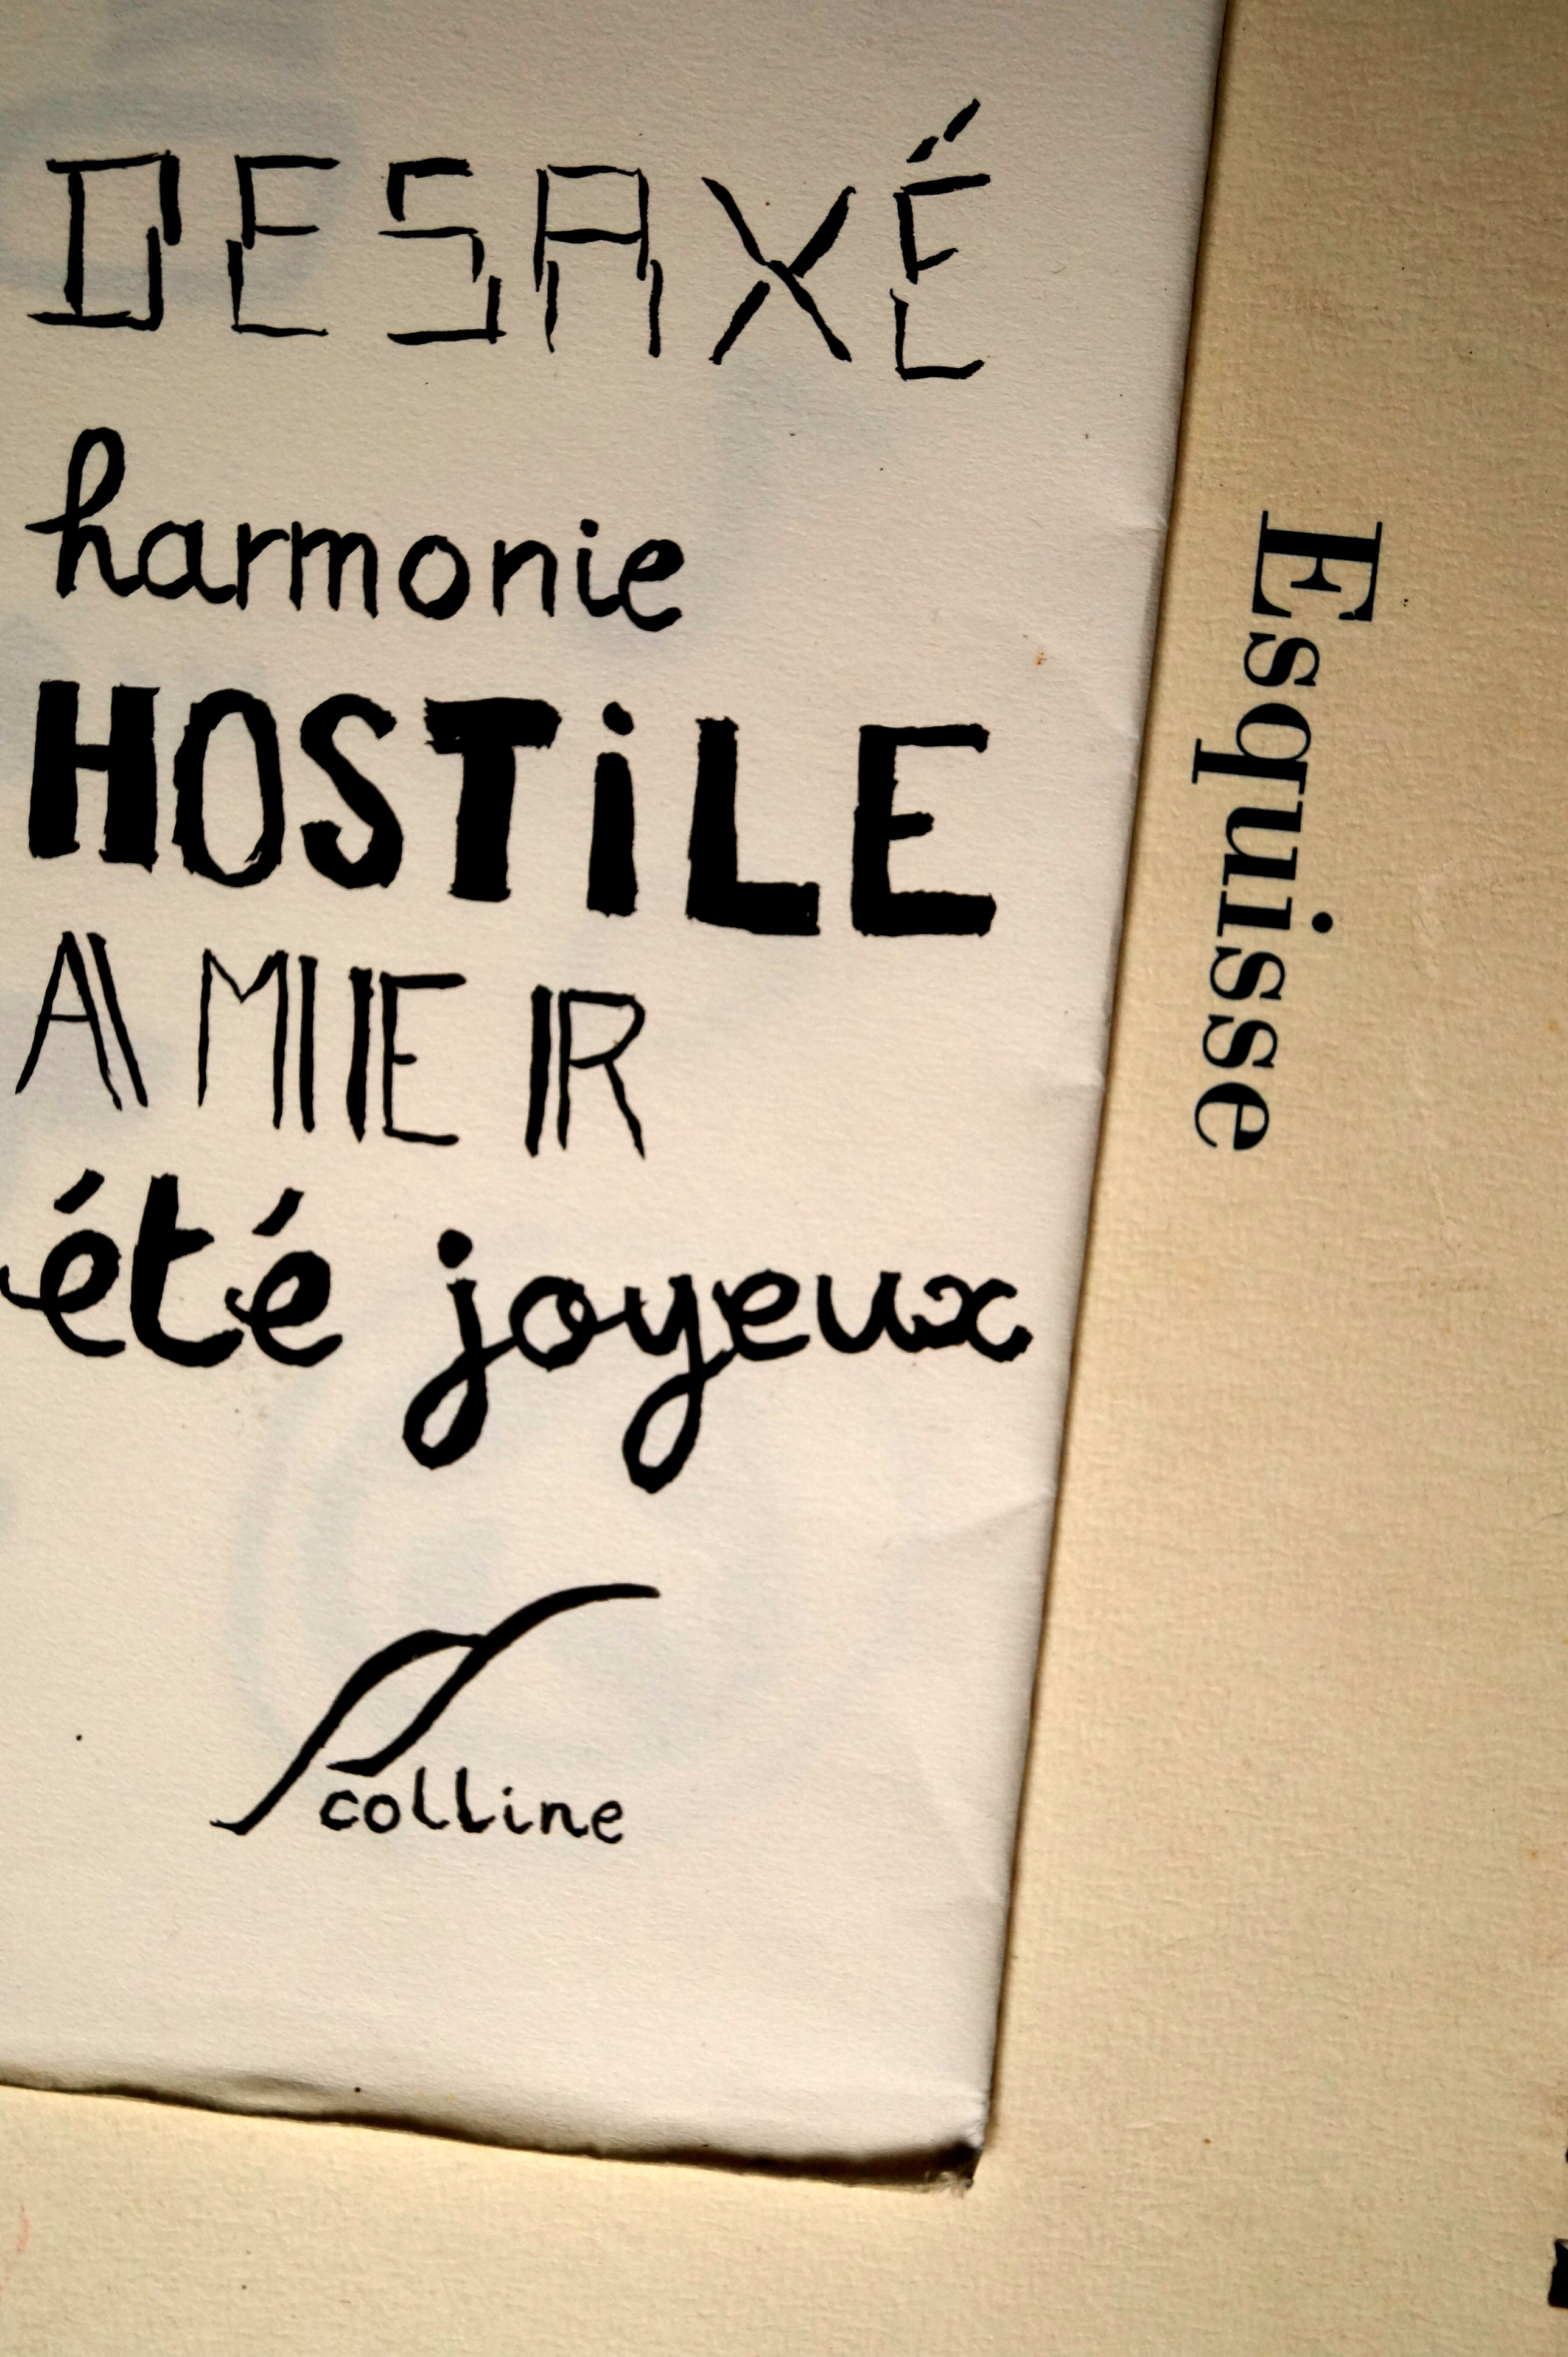 DESAXÉ
harmonie
HOSTiLE
AMER
été joyeux
colline
Esquisse